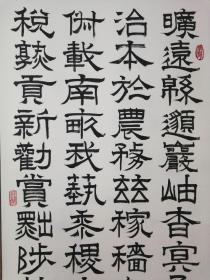 曠遠緜邈巖岫杳冥
治本於農務茲稼穡
俶載南畝我藝黍稷
稅熟貢新勸賞黜陟